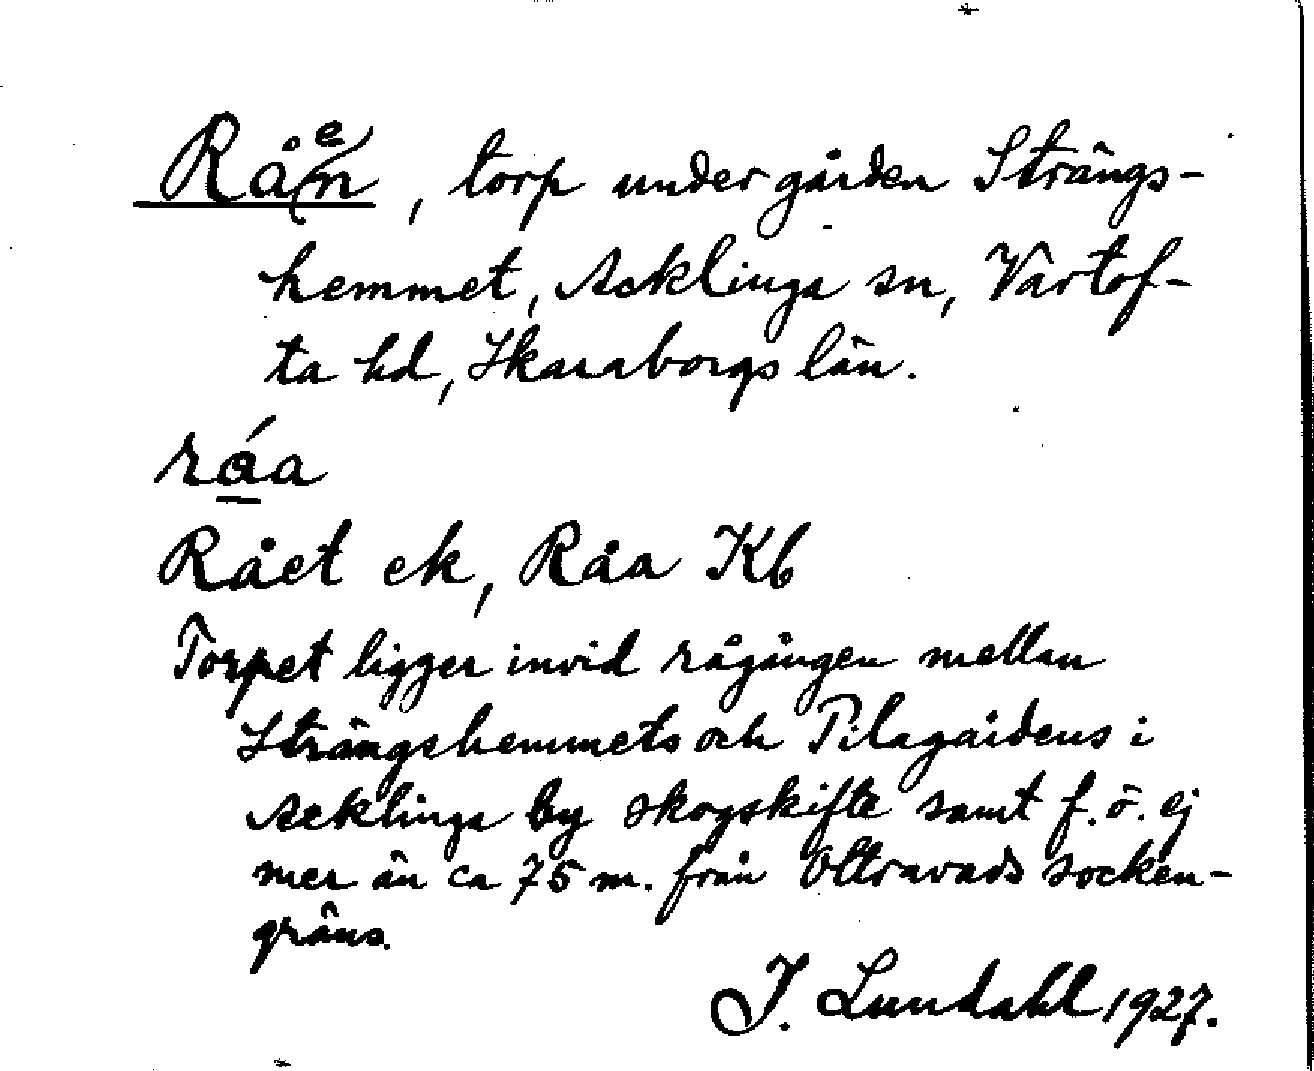 Råen, torp under gården Strängs-
hemmet, Acklinga sn, Vartof-
ta hd, Skaraborgs län.
råa
Rået ek, Råa Kb
Torpet ligger invid rågången mellan
Strängshemmets och Pilagårdens i
Acklinga by skogskifte samt f.ö. ej
mer än ca 75 m. från Ottravads socken-
gräns.
J. Lundahl 1927.